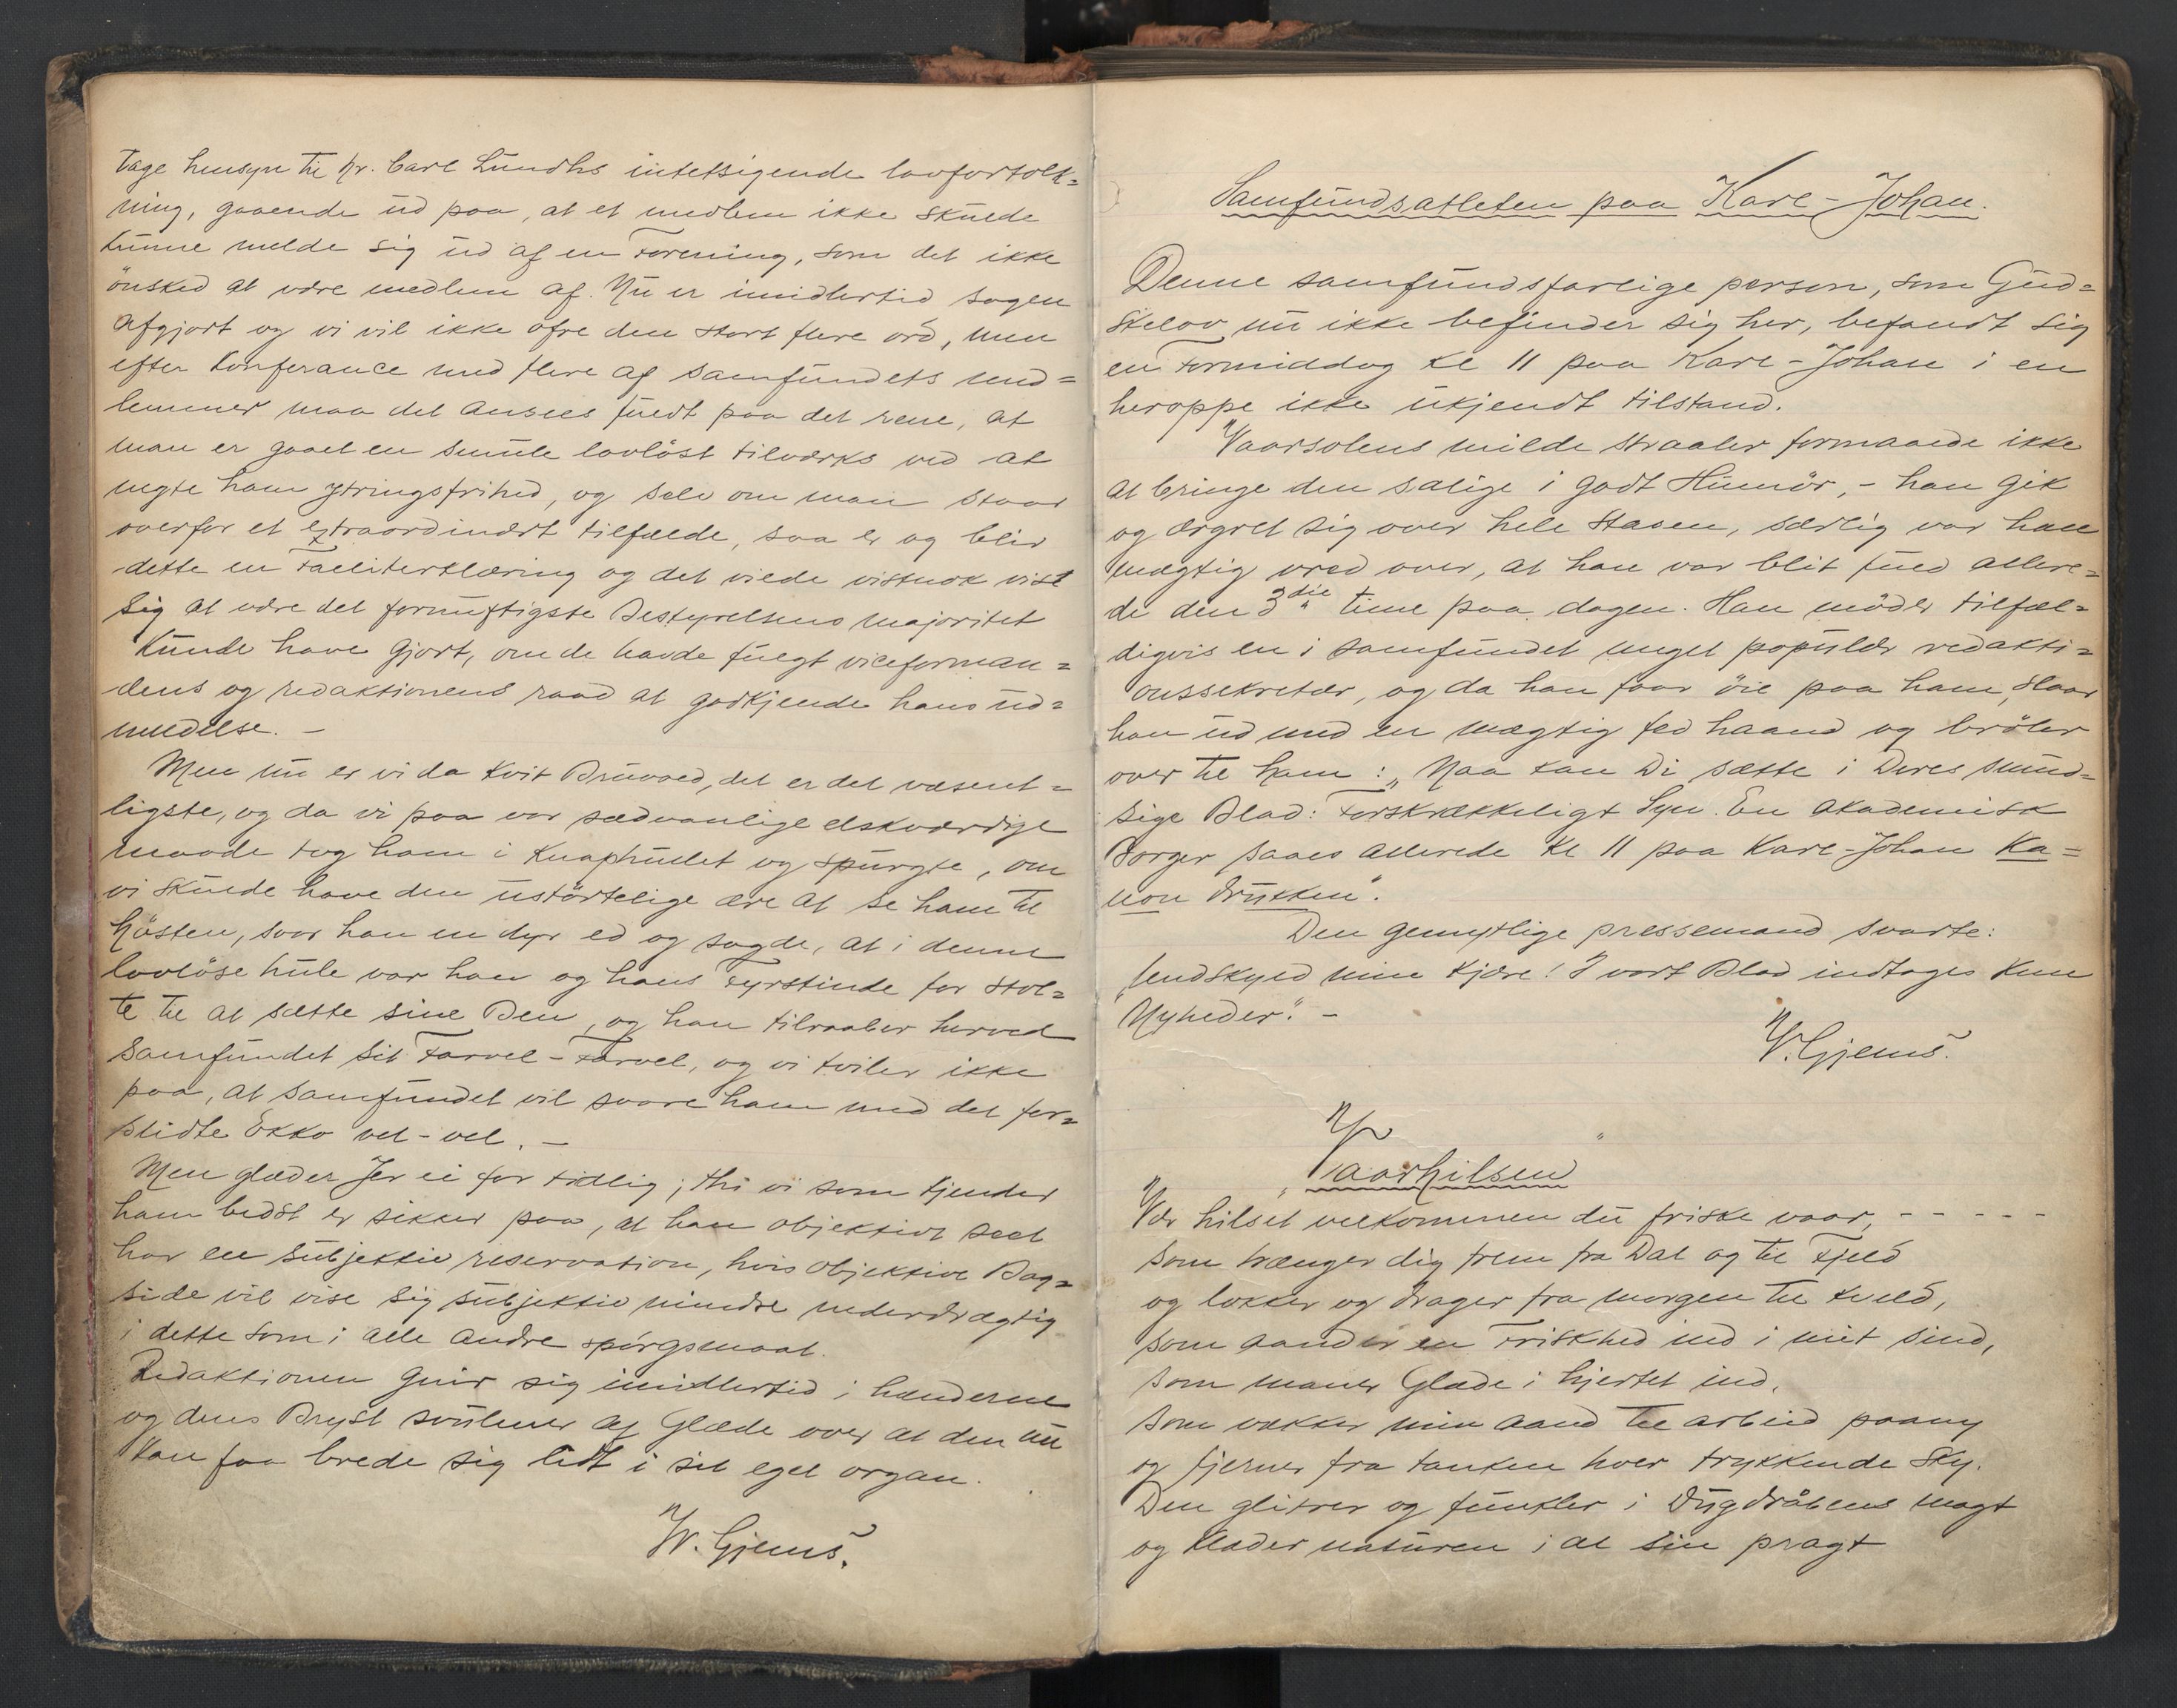 tage hensyn til hr. Carl Lundhs intetsigende lovfortolk=
ning, gaaende ud paa, at et medlem ikke skulde
kunne melde sig ud af en Forening, som det ikke
önsked at være medlem af. Nu er imidlertid sagen
afgjort og vi vil ikke ofre den stort flere ord, men
efter konferance med flere af samfundets med=
lemmer maa det ansees fuldt paa det rene, at
man er gaaet en smule lovlöst tilværks ved at
negte ham ytringsfrihed, og selv om man staar
overfor et extraordinært tilfælde, saa er og blir
dette en Faliterklæring og det vilde vistnok vist
sig at være det fornuftigste Bestyrelsens majoritet
kunde have gjort, om de havde fulgt viceforman=
dens og redaktionens raad at godkjende hans ud=
meldelse. –
Men nu er vi da kvit Bruvold, det er det væsent=
ligste, og da vi paa vor sædvanlige elskværdige
maade tog ham i knaphullet og spurgte, om
vi skulde have den ustörtelige ære at se ham til
hösten, svor han en dyr ed og sagde, at i denne
lovlöse hule var han og hans Fyrstinde for stol=
te til at sætte sine Ben, og han tilraaber herved
samfundet sit Farvel – Farvel, og vi tviler ikke
paa, at samfundet vil svare ham med det for=
slidte Ekko vel – vel. –
Men glæder Jer ei for tidlig; thi vi som kjender
ham bedst er sikker paa, at han objektivt seet
har en subjektiv reservation, hvis objektive Bag=
side vil vise sig subjektiv mindre nederdrægtig
i dette som i alle andre spörgsmaal.
Redaktionen gnir sig imidlertid i hænderne
og dens Bryst svulmer af Glæde over at den nu
kan faa brede sig lidt i sit eget organ.
W. Gjems.
Samfundsatleten paa Karl-Johan.
Denne samfundsfarlige person, som Gud=
skelov nu ikke befinder sig her, befandt sig
en Formiddag kl 11 paa Karl-Johan i en
heroppe ikke ukjendt tilstand.
Vaarsolens milde straaler formaaede ikke
at bringe den salige i godt Humör, – han gik
og ærgret sig over hele stasen, særlig var han
mægtig vred over, at han var blit fuld allere=
de den 3die time paa dagen. Han möder tilfæl=
digvis en i samfundet meget populær redakti=
onssekretær, og da han faar öie paa ham, slaar
han ud med en mægtig fed haand og bröler
over til ham: „Naa kan Di sætte i Deres smud=
sige Blad: Forskrækkeligt Syn. En akademisk
Borger saaes allerede kl 11 paa Karl-Johan Ka=
non drukken“.
Den gemytlige pressemand svarte:
„Undskyld min kjære! I vort Blad indtages kun
Nyheder“. –
W. Gjems.
„Vaarhilsen“
Vær hilset velkommen du friske vaar, - - - - -
som trænger dig frem fra Dal og til Fjeld
og lokker og drager fra morgen til kveld,
som aander en Friskhed ind i mit sind,
som maner Glæde i hjertet ind,
som vækker min aand til arbeid paany
og fjerner fra tanken hver trykkende Sky.
Den glitrer og funkler i Dugdråbens magt
og klæder naturen i al sin pragt